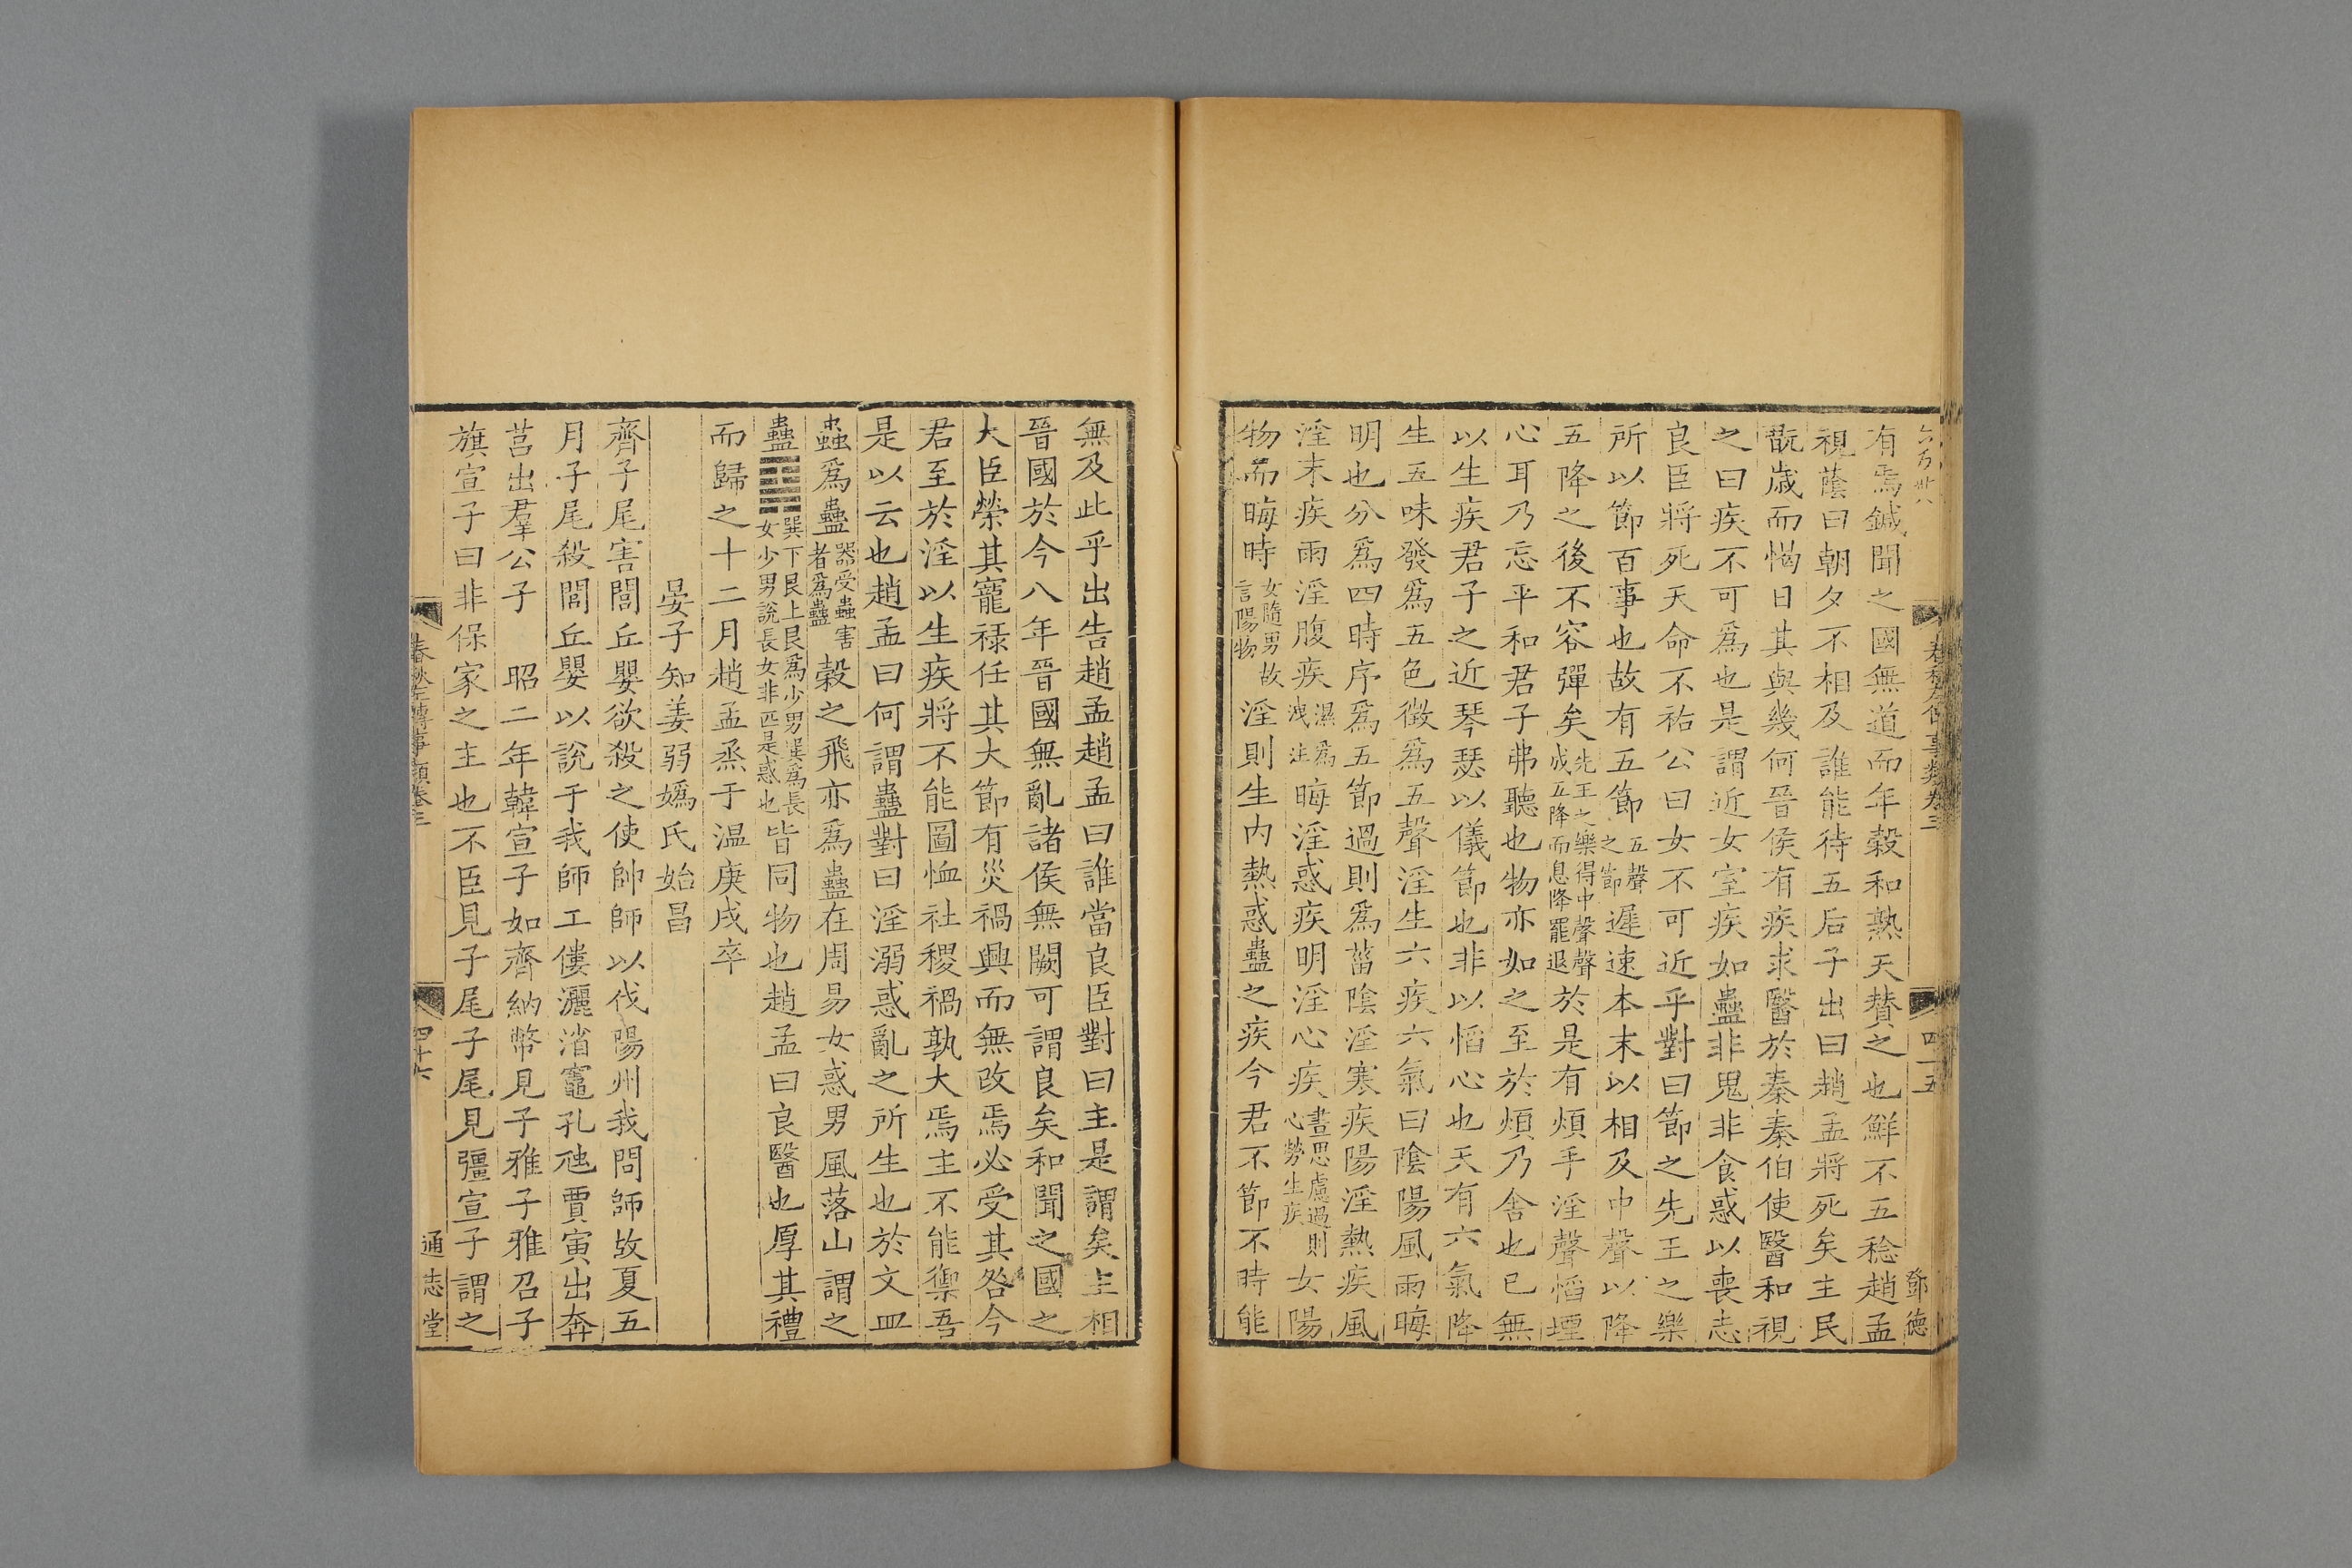 有焉鍼聞之國無道而年穀和熟天贊之也鮮不五稔趙孟
視蔭曰朝夕不相及誰能待五后子出曰趙孟將死矣主民
翫歲而愒日其與幾何晉侯有疾求醫於秦秦伯使醫和視
之曰疾不可爲也是謂近女室疾如蠱非鬼非食惑以喪志
良臣將死天命不祐公曰女不可近乎對曰節之先王之樂
所以節百事也故有五節五聲之節遲速本末以相及中聲以降
五降之後不容彈矣先王之樂得中聲聲成五降而息降罷退於是有煩手淫聲慆堙
心耳乃忘平和君子弗聽也物亦如之至於煩乃舍也已無
以生疾君子之近琴瑟以儀節也非以慆心也天有六氣降
生五味發爲五色徵爲五聲淫生六疾六氣曰陰陽風雨晦
明也分爲四時序爲五節過則爲菑陰淫寒疾陽淫熱疾風
淫末疾雨淫腹疾濕爲洩注晦淫惑疾明淫心疾晝思慮過則心勞生疾女陽
物而晦時女隨男故言陽物淫則生内熱惑蠱之疾今君不節不時能
春秋左傳事類卷三
四十五
鄧德
無及此乎出告趙孟趙孟曰誰當良臣對曰主是謂矣主相
晉國於今八年晉國無亂諸侯無闕可謂良矣和聞之國之
大臣榮其寵祿任其大節有災禍興而無改焉必受其咎今
君至於淫以生疾將不能圖恤社稷禍孰大焉主不能禦吾
是以云也趙孟曰何謂蠱對曰淫溺惑亂之所生也於文皿
蟲爲蠱器受蟲害者爲蠱穀之飛亦爲蠱在周易女惑男風落山謂之
蠱䷑巽下艮上艮爲少男巽爲長女少男說長女非匹是惑也皆同物也趙孟曰良醫也厚其禮
而歸之十二月趙孟烝于温庚戌卒
晏子知姜弱嬀氏始昌
齊子尾害閭丘嬰欲殺之使帥師以伐陽州我問師故夏五
月子尾殺閭丘嬰以說于我師工僂灑渻竈孔虺賈寅出奔
莒出羣公子 昭二年韓宣子如齊納幣見子雅子雅召子
旗宣子曰非保家之主也不臣見子尾子尾見彊宣子謂之
春秋左傳事類卷三
四十六
通志堂